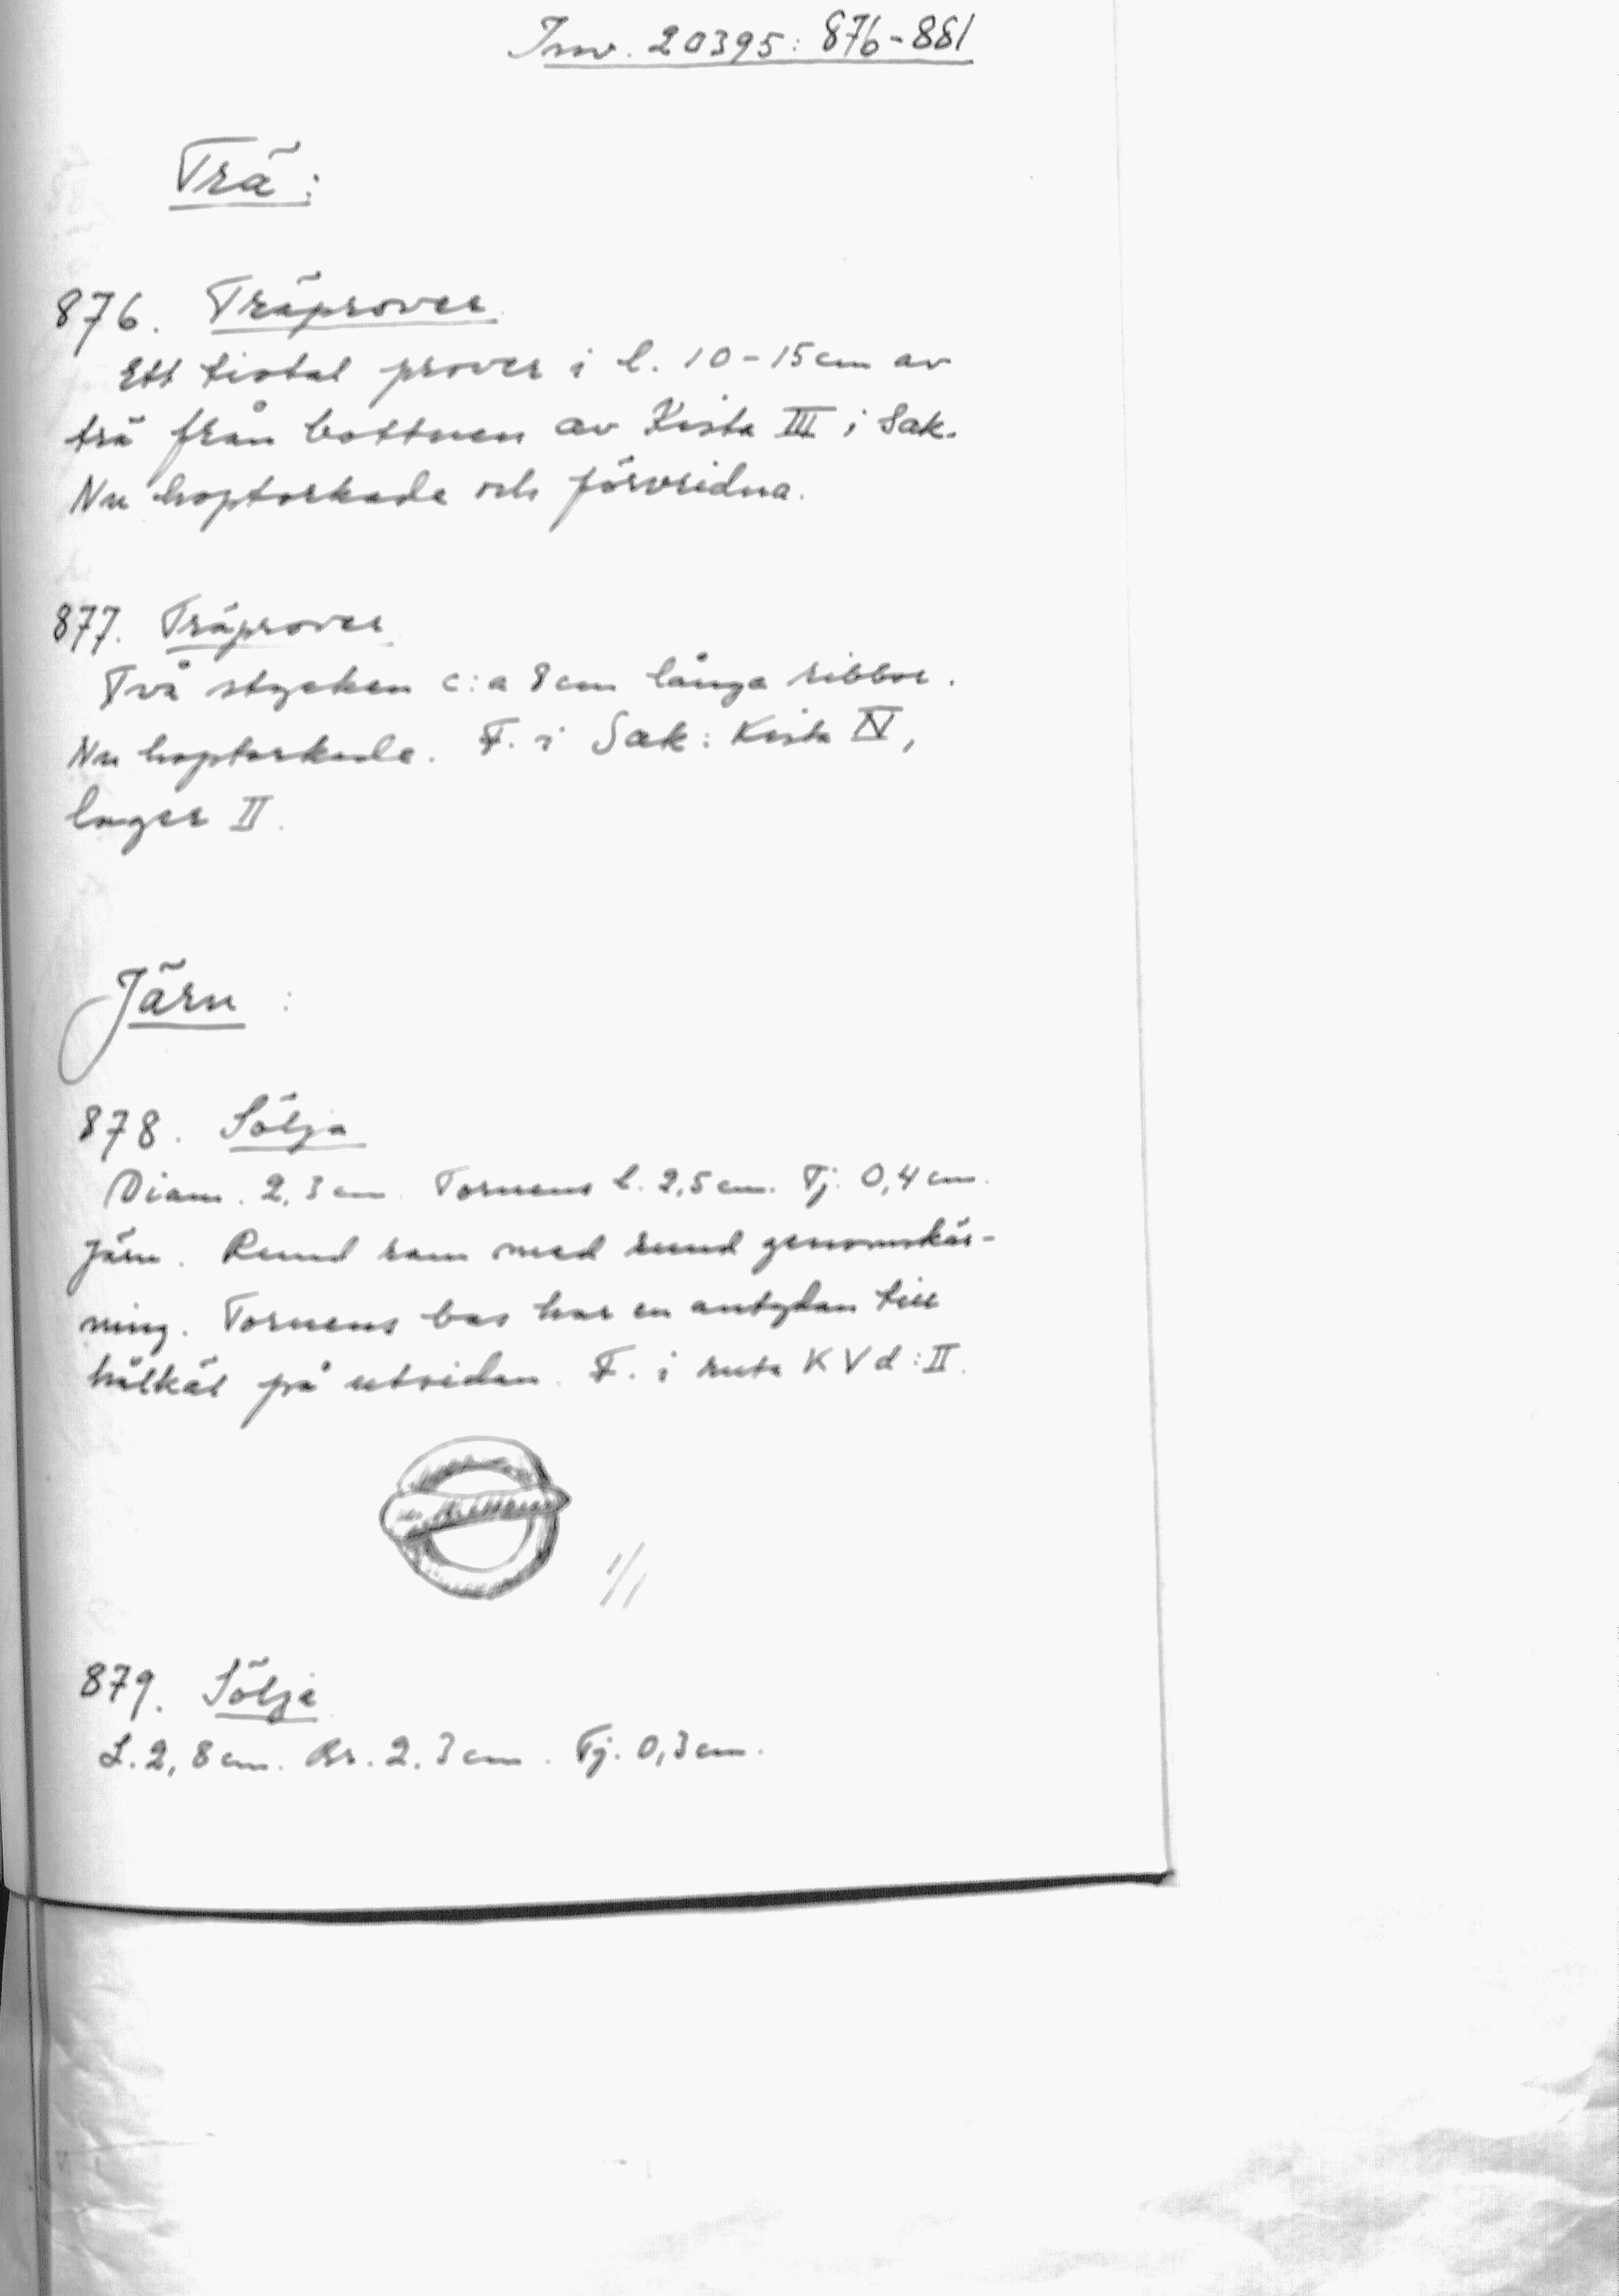 Inv. 20395: 876-881
Trä:
876. Träprover.
Ett tiotal prover i l. 10-15 cm av
trä från bottnen av Kista III i Sak.
Nu hoptorkade och förvridna.
877. Träprover
Två stycken c:a 8 cm långa ribbor.
Nu hoptorkade. F. i Sak: Kista IV,
lager II.
Järn:
878. Sölja
Diam. 2,3 cm. Tornens l. 2,5 cm. Tj. 0,4 cm.
Järn. Rund ram med rund genomskär-
ning. Tornens bas har en antydan till
hålkäl på utsidan. F. i ruta K V d:II.
1/1
879. Sölja
L. 2,8 cm. Br. 2.3 cm. Tj. 0,3 cm.